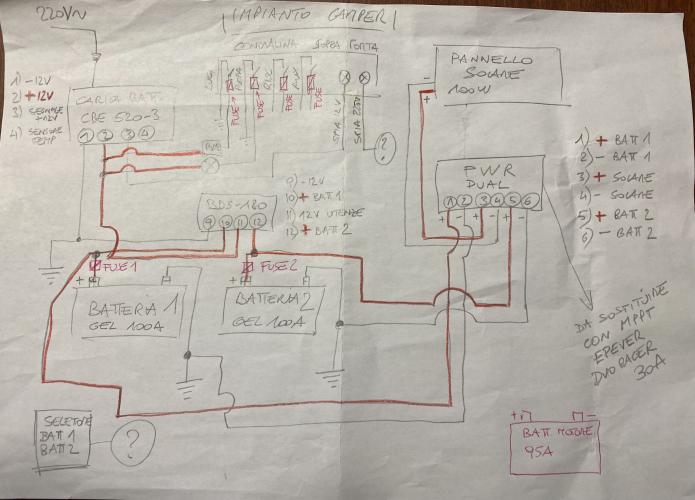 IMPIANTO CAMPER
220V~
CENTRALINA SOPRA PORTA
FUSE
FUSE
FUSE
FUSE
SPIA 12V
SPIA 220V
?
1) -12V
2) +12V
3) SEGNALE +12V
4) SENSORE TEMP
CARICA BATT.
CBE 520-3
1 2 3 4
PANNELLO
SOLARE
100W
- +
PWR
DUAL
1 2 3 4 5 6
+ - + - + -
1) + BATT 1
2) - BATT 1
3) + SOLARE
4) - SOLARE
5) + BATT 2
6) - BATT 2
BDS-180
9 10 11 12
9) -12V
10) + BATT 1
11) 12V UTENZE
12) + BATT 2
FUSE 1
FUSE 2
+ -
BATTERIA 1
GEL 100A
+ -
BATTERIA 2
GEL 100A
DA SOSTITUIRE
CON MPPT
EPEVER
DUORACER
30A
SELETTORE
BATT 1
BATT 2
?
+ -
BATT MOTORE
95A